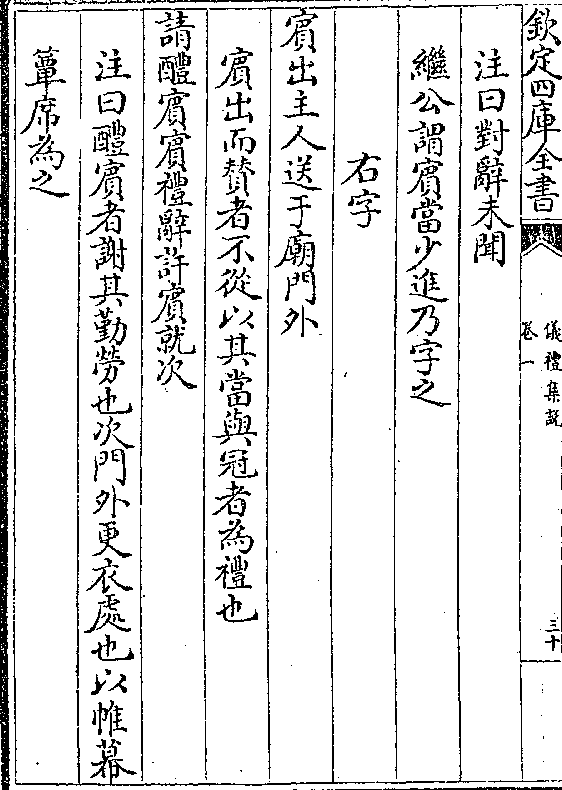 欽定四庫全書
儀禮集説
卷一
三十
注曰對辭未聞
繼公謂賓當少進乃字之
右字
賓出主人送于廟門外
賓出而贊者不從以其當與冠者為禮也
請醴賓賓禮辭許賓就次
注曰醴賓者謝其勤勞也次門外更衣處也以帷幕
簟席為之